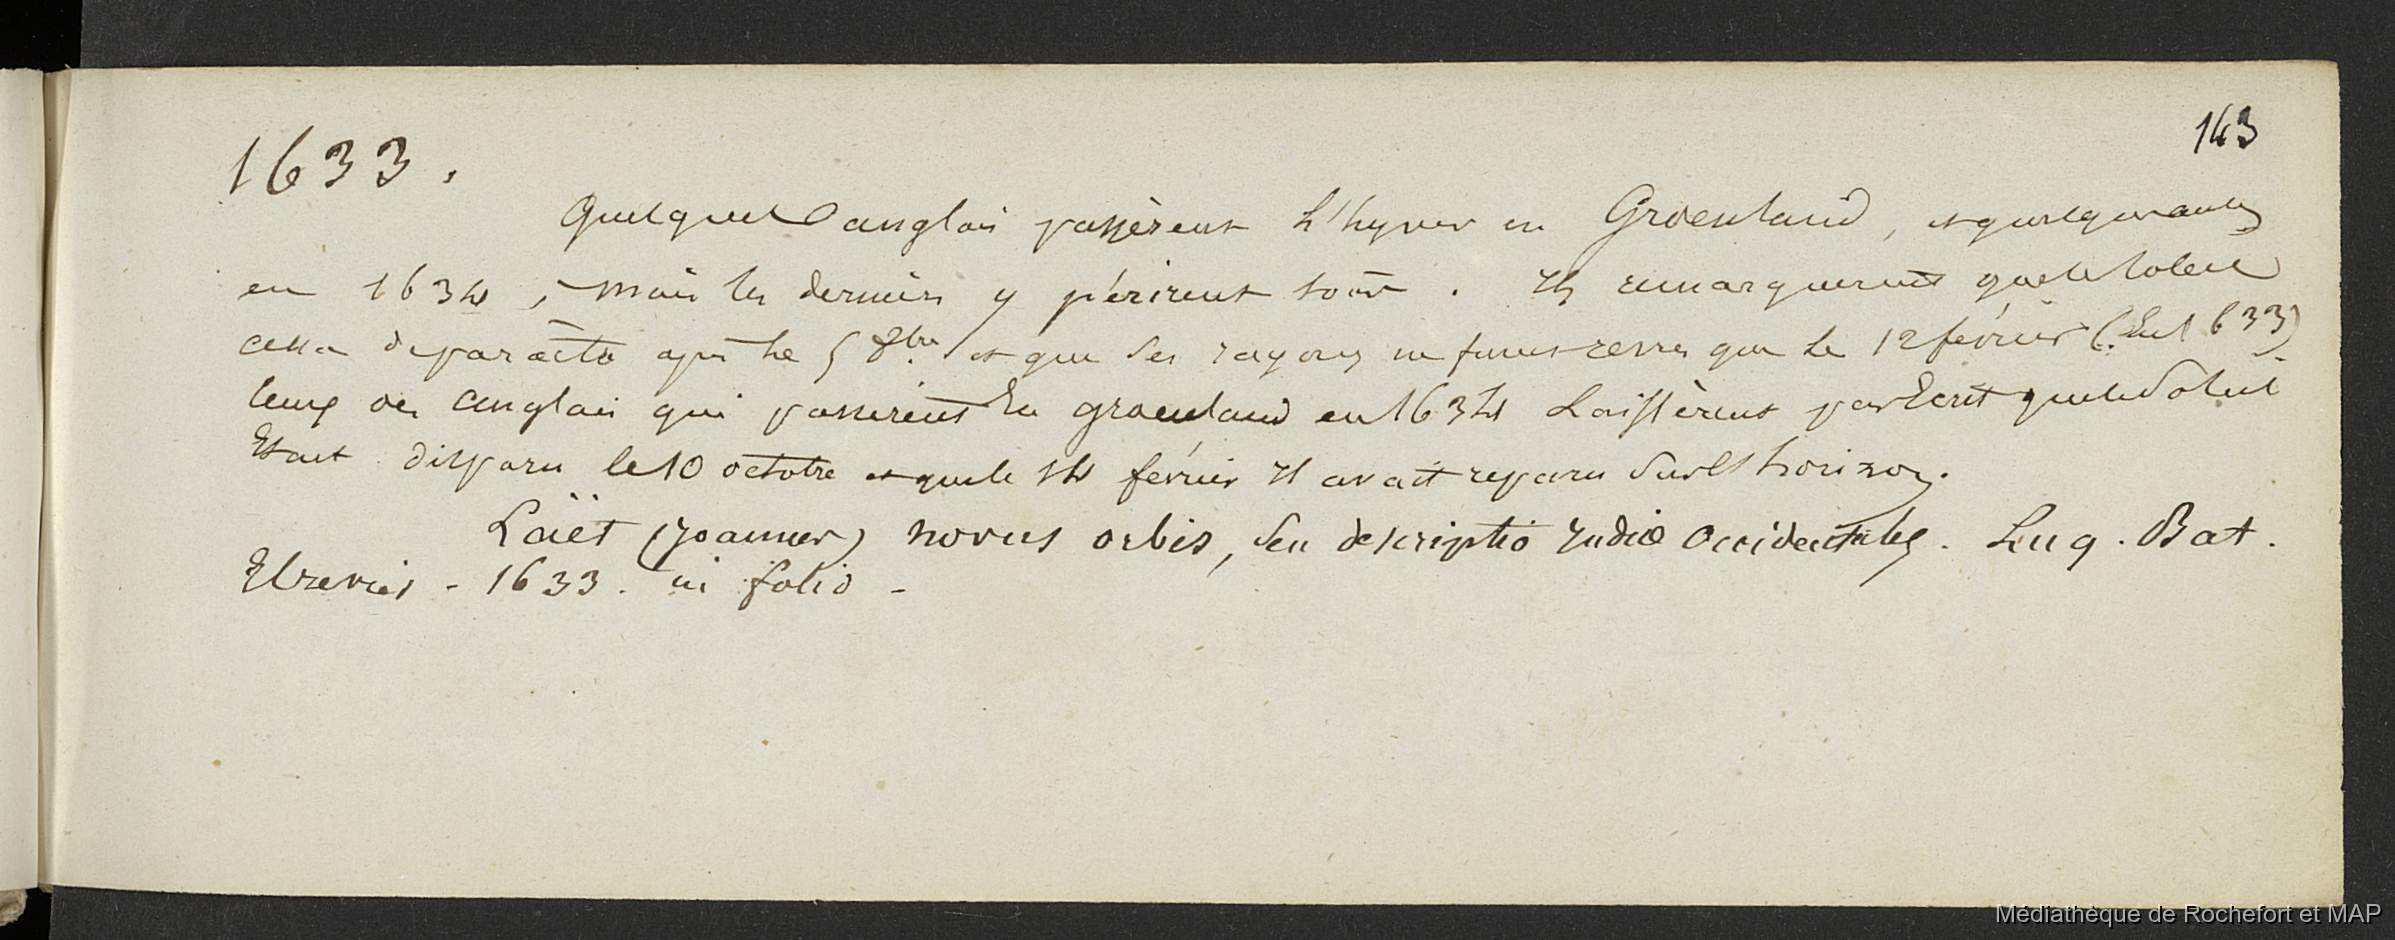 143
1633.
Quelques anglais passèrent l'hyver en Groenland, et quelques autres
en 1634, mais les derniers y périrent tous. Ils remarquerent que le soleil
cessa de paraitre après le 5 8bre et que ses rayons ne furent revus que le 12 février (. 1633)
ceux des anglais qui passerent en groenland en 1634 Laissèrent par Ecrit que le Soleil
Etait disparu le 10 octobre et que le 14 février il avait reparu sur l'horizon.
Laët (Joannes) novus orbis, seu descriptio Indiæ Occidentalis. Lug. Bat.
Elzevier - 1633. in folio -
Médiathèque de Rochefort et MAP